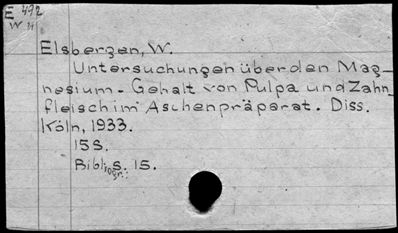 E 492
W 21
Elsbergen, W.
Untersuchungen über den Mag-
nesium-Gehalt von Pulpa und Zahn-
fleisch im Aschenpräparat. Diss.
Köln, 1933.
15 S.
Bibliogr.: S. 15.